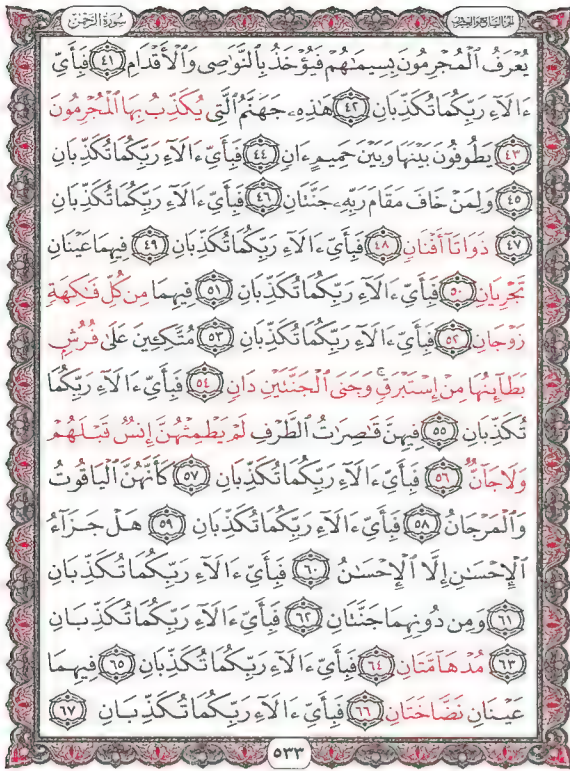 الجزء السابع والعشرون سورة الرحمن
يُعْرَفُ ٱلْمُجْرِمُونَ بِسِيمَٰهُمْ فَيُؤْخَذُ بِٱلنَّوَٰصِى وَٱلْأَقْدَامِ ٤١ فَبِأَيِّ
ءَالَآءِ رَبِّكُمَا تُكَذِّبَانِ ٤٢ هَٰذِهِۦ جَهَنَّمُ ٱلَّتِى يُكَذِّبُ بِهَا ٱلْمُجْرِمُونَ
٤٣ يَطُوفُونَ بَيْنَهَا وَبَيْنَ حَمِيمٍ ءَانٍ ٤٤ فَبِأَيِّ ءَالَآءِ رَبِّكُمَا تُكَذِّبَانِ
٤٥ وَلِمَنْ خَافَ مَقَامَ رَبِّهِۦ جَنَّتَانِ ٤٦ فَبِأَيِّ ءَالَآءِ رَبِّكُمَا تُكَذِّبَانِ
٤٧ ذَوَاتَآ أَفْنَانٍ ٤٨ فَبِأَيِّ ءَالَآءِ رَبِّكُمَا تُكَذِّبَانِ ٤٩ فِيهِمَا عَيْنَانِ
تَجْرِيَانِ ٥٠ فَبِأَيِّ ءَالَآءِ رَبِّكُمَا تُكَذِّبَانِ ٥١ فِيهِمَا مِن كُلِّ فَٰكِهَةٍ
زَوْجَانِ ٥٢ فَبِأَيِّ ءَالَآءِ رَبِّكُمَا تُكَذِّبَانِ ٥٣ مُتَّكِـِٔينَ عَلَىٰ فُرُشٍۭ
بَطَآئِنُهَا مِنْ إِسْتَبْرَقٍ ۚ وَجَنَى ٱلْجَنَّتَيْنِ دَانٍ ٥٤ فَبِأَيِّ ءَالَآءِ رَبِّكُمَا
تُكَذِّبَانِ ٥٥ فِيهِنَّ قَٰصِرَٰتُ ٱلطَّرْفِ لَمْ يَطْمِثْهُنَّ إِنسٌ قَبْلَهُمْ
وَلَا جَآنٌّ ٥٦ فَبِأَيِّ ءَالَآءِ رَبِّكُمَا تُكَذِّبَانِ ٥٧ كَأَنَّهُنَّ ٱلْيَاقُوتُ
وَٱلْمَرْجَانُ ٥٨ فَبِأَيِّ ءَالَآءِ رَبِّكُمَا تُكَذِّبَانِ ٥٩ هَلْ جَزَآءُ
ٱلْإِحْسَٰنِ إِلَّا ٱلْإِحْسَٰنُ ٦٠ فَبِأَيِّ ءَالَآءِ رَبِّكُمَا تُكَذِّبَانِ
٦١ وَمِن دُونِهِمَا جَنَّتَانِ ٦٢ فَبِأَيِّ ءَالَآءِ رَبِّكُمَا تُكَذِّبَانِ
٦٣ مُدْهَآمَّتَانِ ٦٤ فَبِأَيِّ ءَالَآءِ رَبِّكُمَا تُكَذِّبَانِ ٦٥ فِيهِمَا
عَيْنَانِ نَضَّاخَتَانِ ٦٦ فَبِأَيِّ ءَالَآءِ رَبِّكُمَا تُكَذِّبَانِ ٦٧
٥٣٣